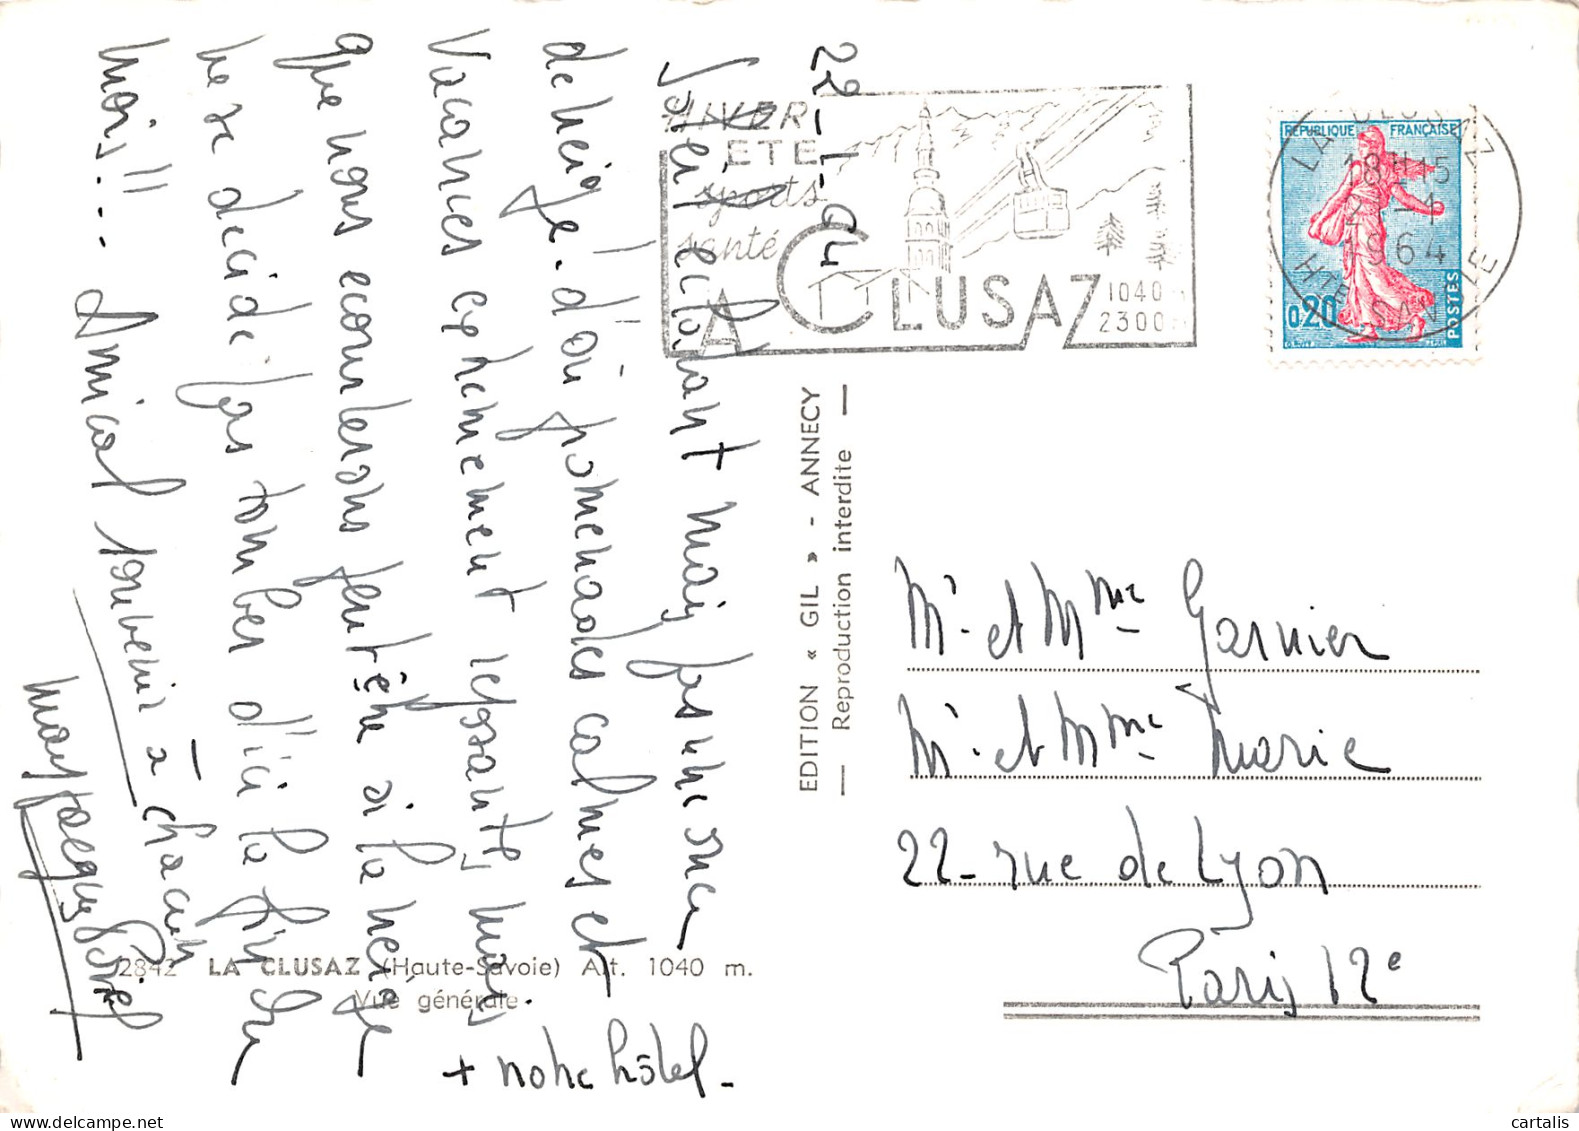 22-1-64
Soleil éclatant mais pas une once
de neige! d'où promenades calmes et
vacances extrêmement reposantes, mais
que nous écourterons peut-être si la neige
ne se décide pas tomber d'ici la fin du
mois!!.. Amical souvenir à chacun
+ notre hôtel-
HIVER
ETE
sports
santé
LA CLUSAZ
1040 m
2300 m
REPUBLIQUE FRANÇAISE
0,20
POSTES
LA CLUSAZ
18H15
1964
HTE SAVOIE
EDITION « GIL » - ANNECY
— Reproduction interdite —
Mr. et Mme Garnier
Mr. et Mme Marie
22-rue de Lyon
Paris 12e
2842 LA CLUSAZ (Haute-Savoie) Alt. 1040 m.
Vue générale.
cartalis.com